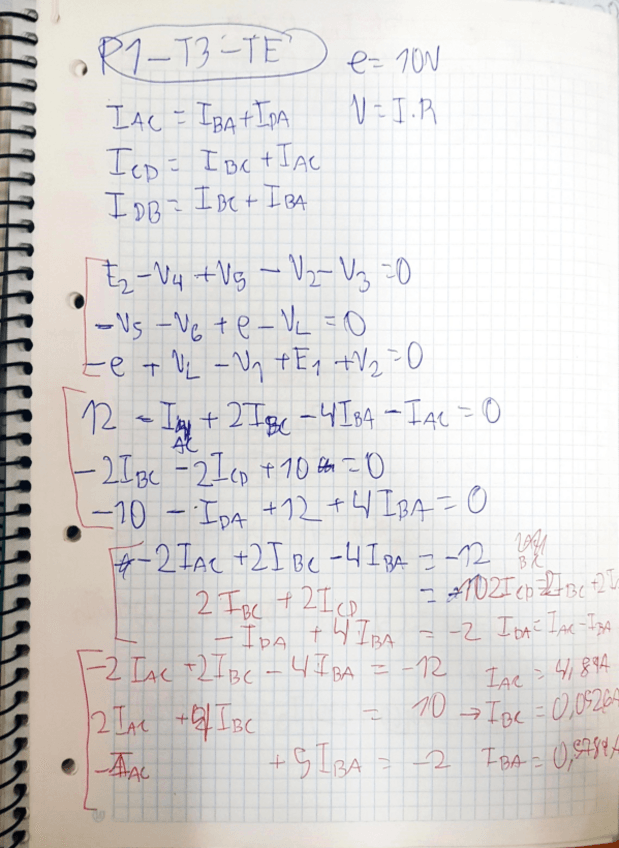 P1-T3-TE    e = 10V
I_AC = I_BA + I_DA    V = I.R
I_CD = I_BC + I_AC
I_DB = I_BC + I_BA
E_2 - V_4 + V_5 - V_2 - V_3 = 0
-V_5 - V_6 + e - V_L = 0
-e + V_L - V_1 + E_1 + V_2 = 0
12 - I_AC + 2I_BC - 4I_BA - I_AC = 0
-2I_BC - 2I_CD + 10 = 0
-10 - I_DA + 12 + 4I_BA = 0
-2I_AC + 2I_BC - 4I_BA = -12
2I_BC + 2I_CD = 10    2I_CD = 2I_BC + 2I
-I_DA + 4I_BA = -2    I_DA = I_AC - I_BA
-2I_AC + 2I_BC - 4I_BA = -12    I_AC = 4,89A
2I_AC + 4I_BC = 10 → I_BC = 0,0526A
-I_AC + 5I_BA = -2    I_BA = 0,5789A